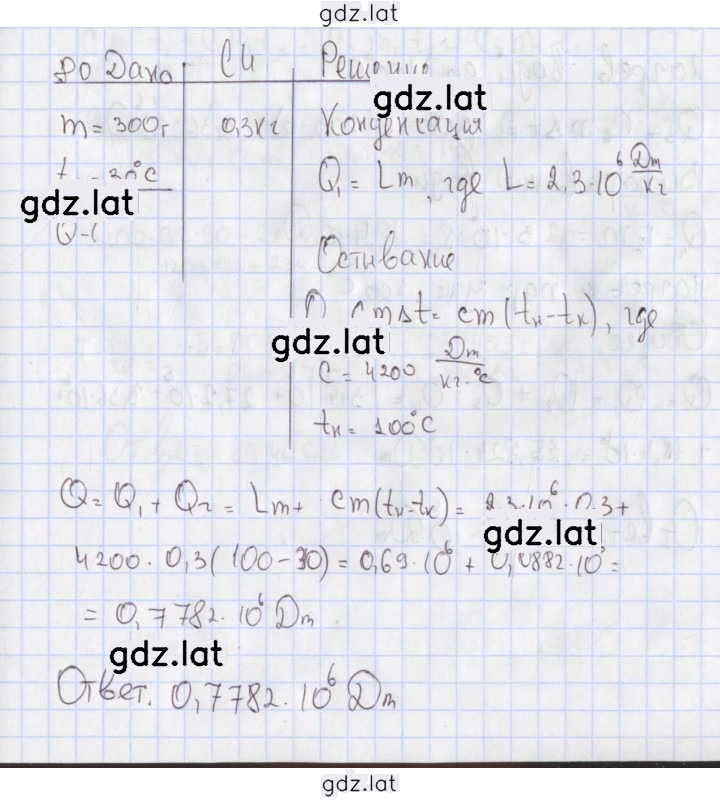 gdz.lat
Дано СИ Решение
gdz.lat
m = 300г 0,3кг Конденсация
20°C
gdz.lat
Q₁ = Lm, где L = 2,3·10⁶ Дж/кг
Остывание
cmΔt = cm(tн-tк), где
gdz.lat
c = 4200 Дж/кг·°C
tн = 100°C
Q = Q₁ + Q₂ = Lm + cm(tн-tк) = 2,3·10⁶·0,3 +
gdz.lat
4200·0,3(100-30) = 0,69·10⁶ + 0,0882·10⁶ =
= 0,7782·10⁶ Дж
gdz.lat
Ответ. 0,7782·10⁶ Дж
gdz.lat